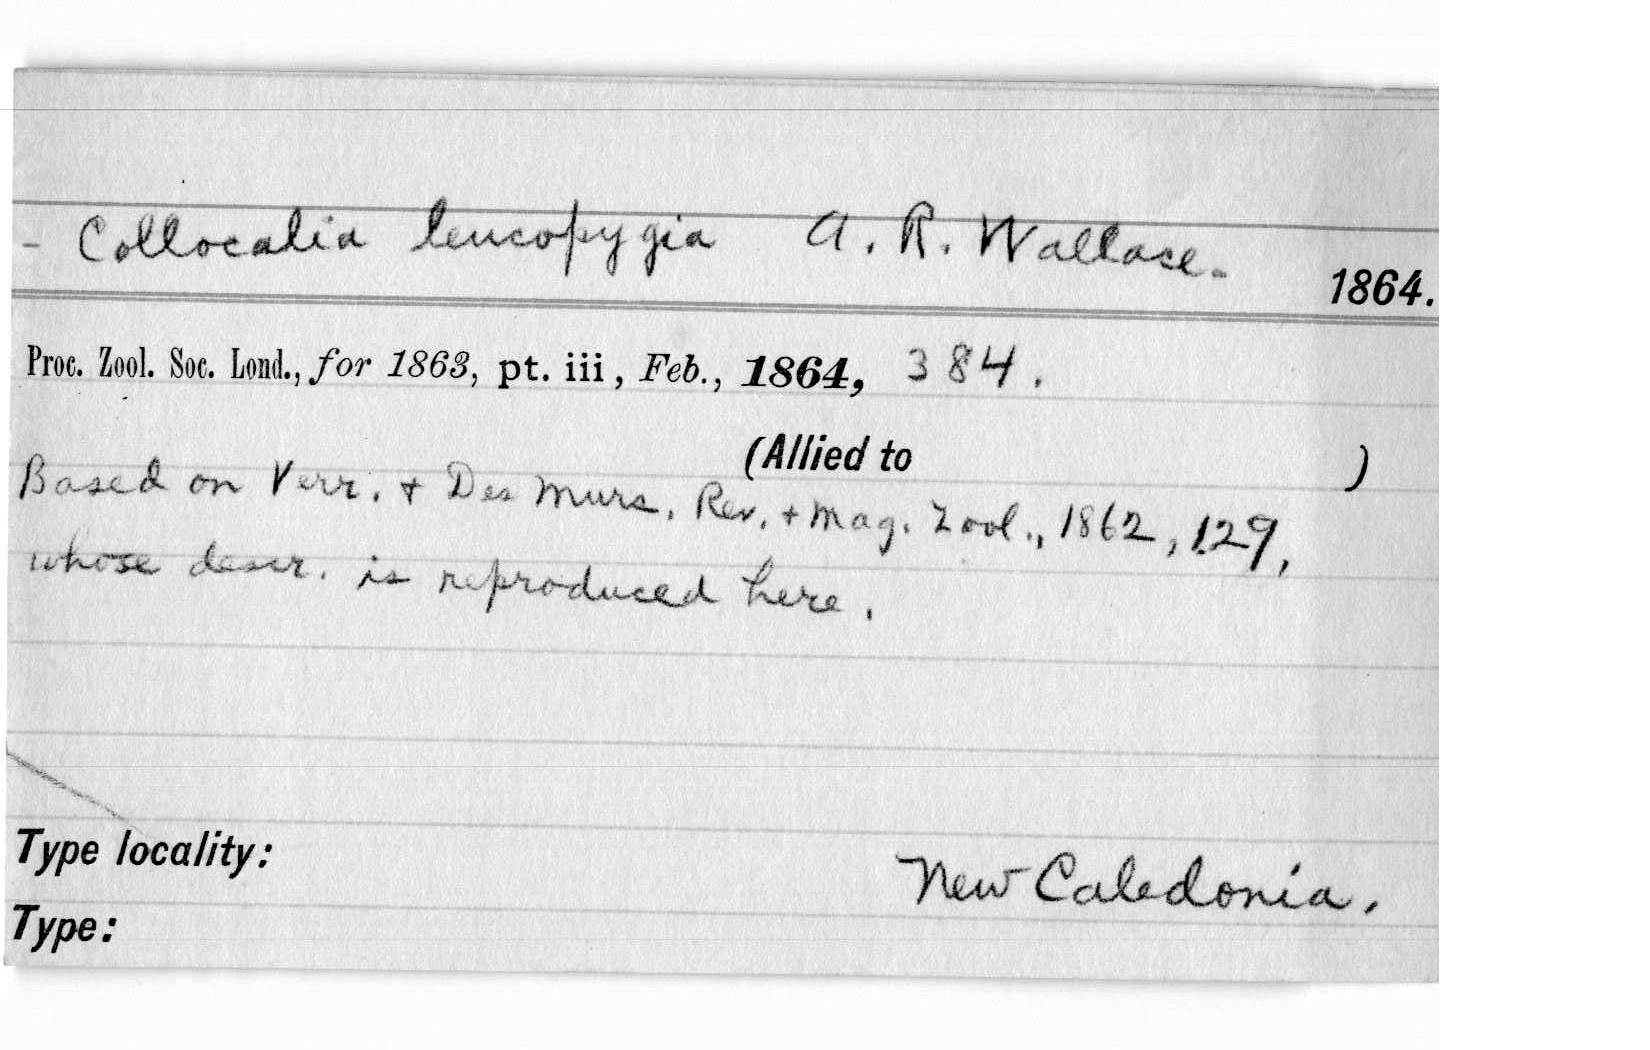 - Collocalia leucopygia A. R. Wallace. 1864.
Proc. Zool. Soc. Lond., for 1863, pt. iii, Feb., 1864, 384.
(Allied to )
Based on Verr. + Des Murs, Rev. + Mag. Zool., 1862, 129,
whose descr. is reproduced here.
Type locality: New Caledonia.
Type: